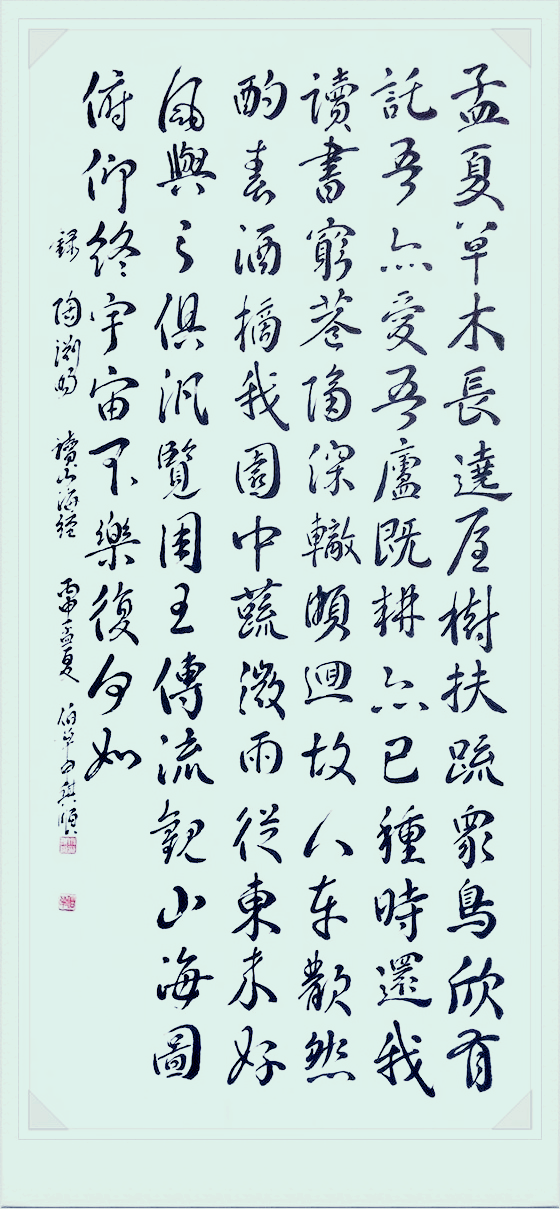 孟夏草木長遶屋樹扶疏眾鳥欣有
託吾亦愛吾廬既耕亦已種時還我
讀書窮巷隔深轍頗迴故人車歡然
酌春酒摘我園中蔬微雨從東來好
風與之俱汎覽周王傳流觀山海圖
俯仰終宇宙不樂復何如
錄 陶淵明 讀山海經 丙申孟夏